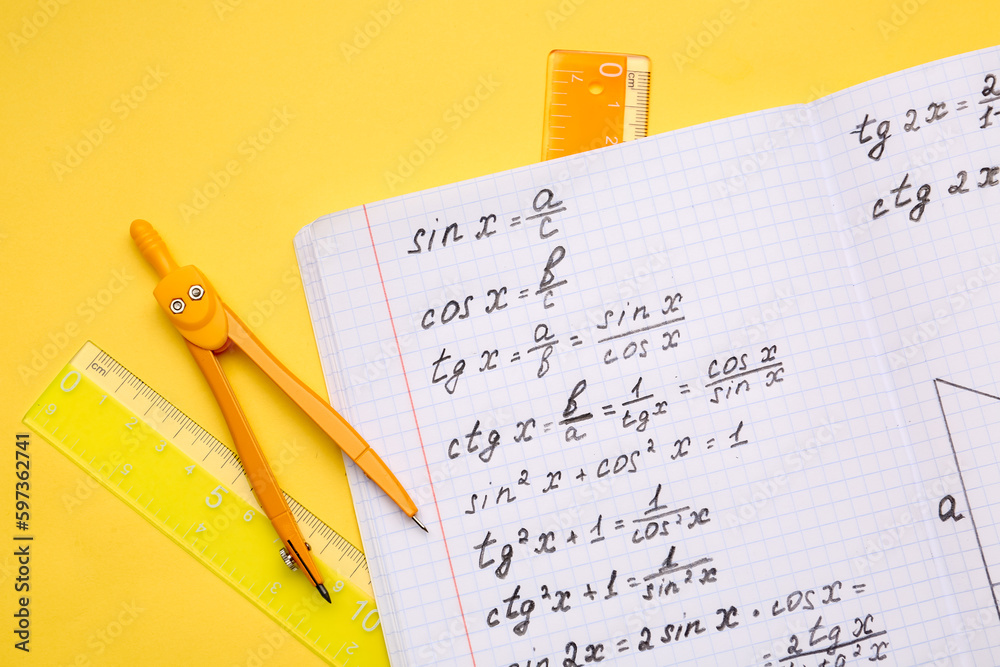 sin x = a/c
cos x = b/c
tg x = a/b = sin x / cos x
ctg x = b/a = 1/tg x = cos x / sin x
sin² x + cos² x = 1
tg² x + 1 = 1/cos² x
ctg² x + 1 = 1/sin² x
2x = 2 sin x · cos x =
tg 2x =
ctg 2x
a
0 1 2
cm
0 5 10
cm
Adobe Stock | #597362741